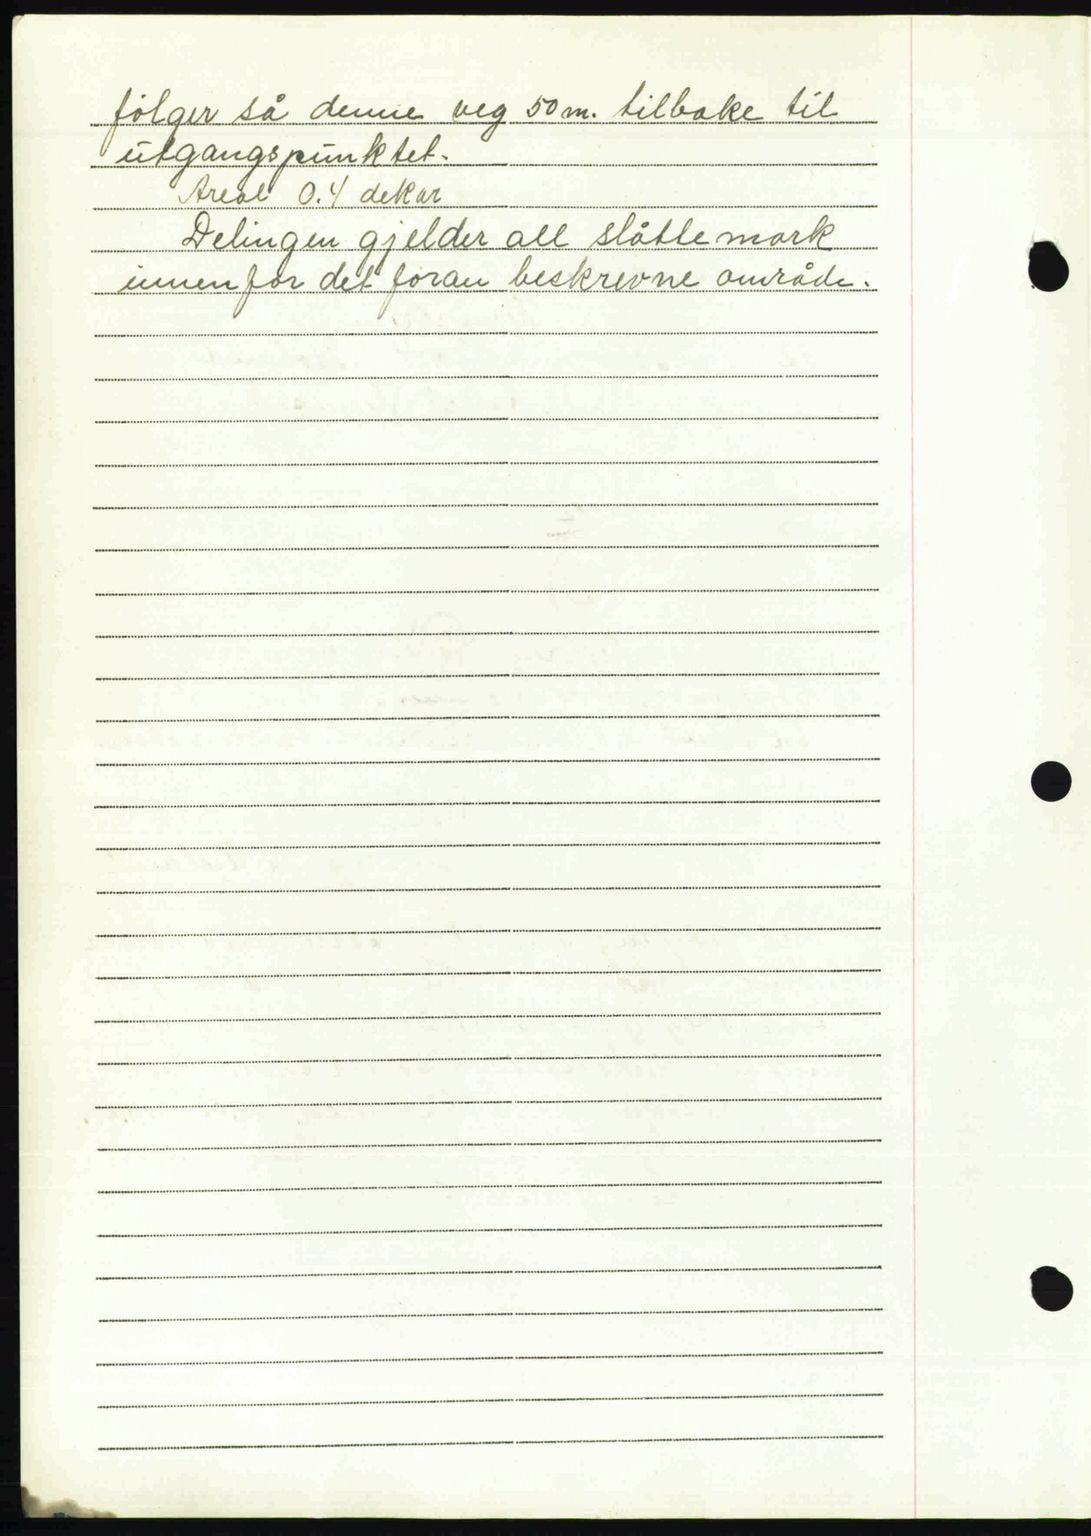 følger så denne veg 50 m. tilbake til
utgangspunktet.
Areal 0.4 dekar
Delingen gjelder all slåttemark
innenfor det foran beskrevne område.